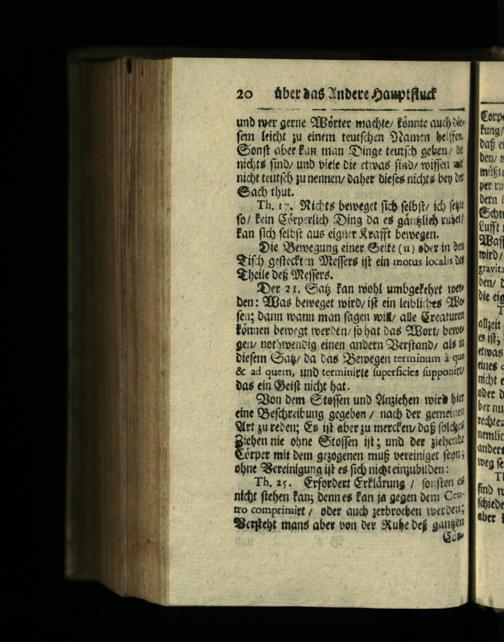 20 über das Andere Hauptstuck
und wer gerne Wörter machte/ könnte auch die-
sem leicht zu einem teutschen Namen helffen.
Sonst aber kan man Dinge teutsch geben/ die
nichts sind/ und viele die etwas sind/ wissen wir
nicht teutsch zu nennen/ daher dieses nichts bey der
Sach thut.
Th. 17. Nichts beweget sich selbst/ ich setze
so/ kein Cörperlich Ding da es gäntzlich ruhet/
kan sich selbst aus eigner Krafft bewegen.
Die Bewegung einer Seite (u) oder in den
Tisch gesteckten Messers ist ein motus localis der
Theile deß Messers.
Der 21. Satz kan wohl umbgekehrt wer-
den: Was beweget wird/ ist ein leibliches We-
sen; dann wann man sagen will/ alle Creaturen
können bewegt werden/ so hat das Wort/ bewe-
gen/ nothwendig einen andern Verstand/ als in
diesem Satz/ da das Bewegen terminum à quo
& ad quem, und terminirte superficies supponirt/
das ein Geist nicht hat.
Von dem Stossen und Anziehen wird hier
eine Beschreibung gegeben/ nach der gemeinen
Art zu reden; Es ist aber zu mercken/ daß solches
Ziehen nie ohne Stossen ist; und der ziehende
Cörper mit dem gezogenen muß vereiniget seyn;
ohne Vereinigung ist es sich nicht einzubilden:
Th. 25. Erfordert Erklärung/ sonsten es
nicht stehen kan; denn es kan ja gegen dem Cen-
tro comprimirt/ oder auch zerbrochen werden;
Versteht mans aber von der Ruhe deß gantzen
Cör-